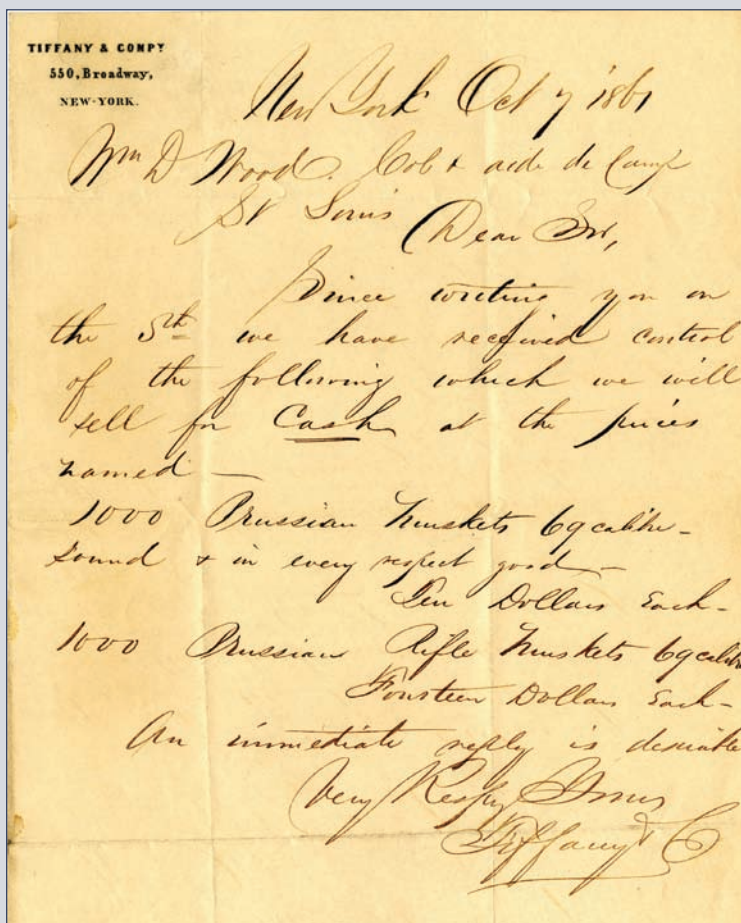 TIFFANY & COMPY
550, Broadway,
NEW-YORK.
New York Oct 7 1861
Wm D Wood. Col & aide de Camp
St Louis
Dear Sir,
Since writing you on
the 5th we have received control
of the following which we will
sell for Cash at the prices
named —
1000 Prussian Muskets 69 calibre -
sound & in every respect good —
Ten Dollars Each -
1000 Prussian Rifle Muskets 69 calibre
Fourteen Dollars Each -
An immediate reply is desirable
Very Respy Yours
Tiffany & Co